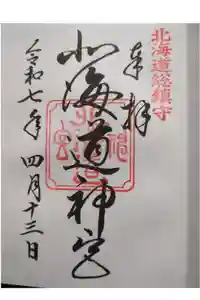 北海道総鎮守
奉拝
北海道神宮
令和七年四月十三日